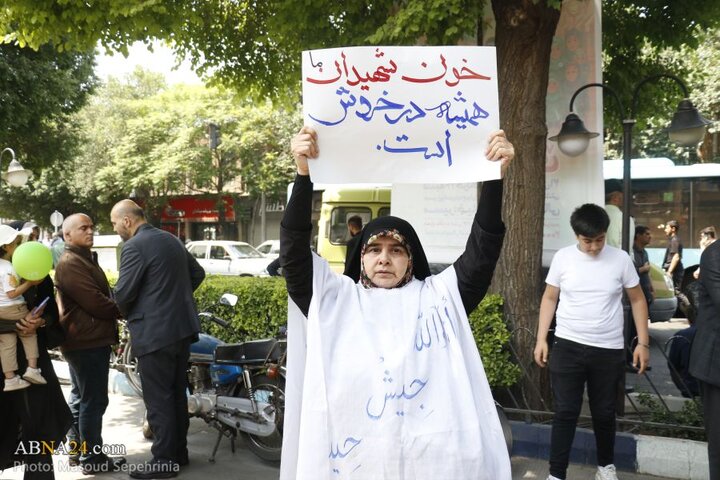 خون شهیدان ما
همیشه در خروش
است.
أو الله
جیشُ
ABNA24.com
Photo: Masoud Sepehrinia